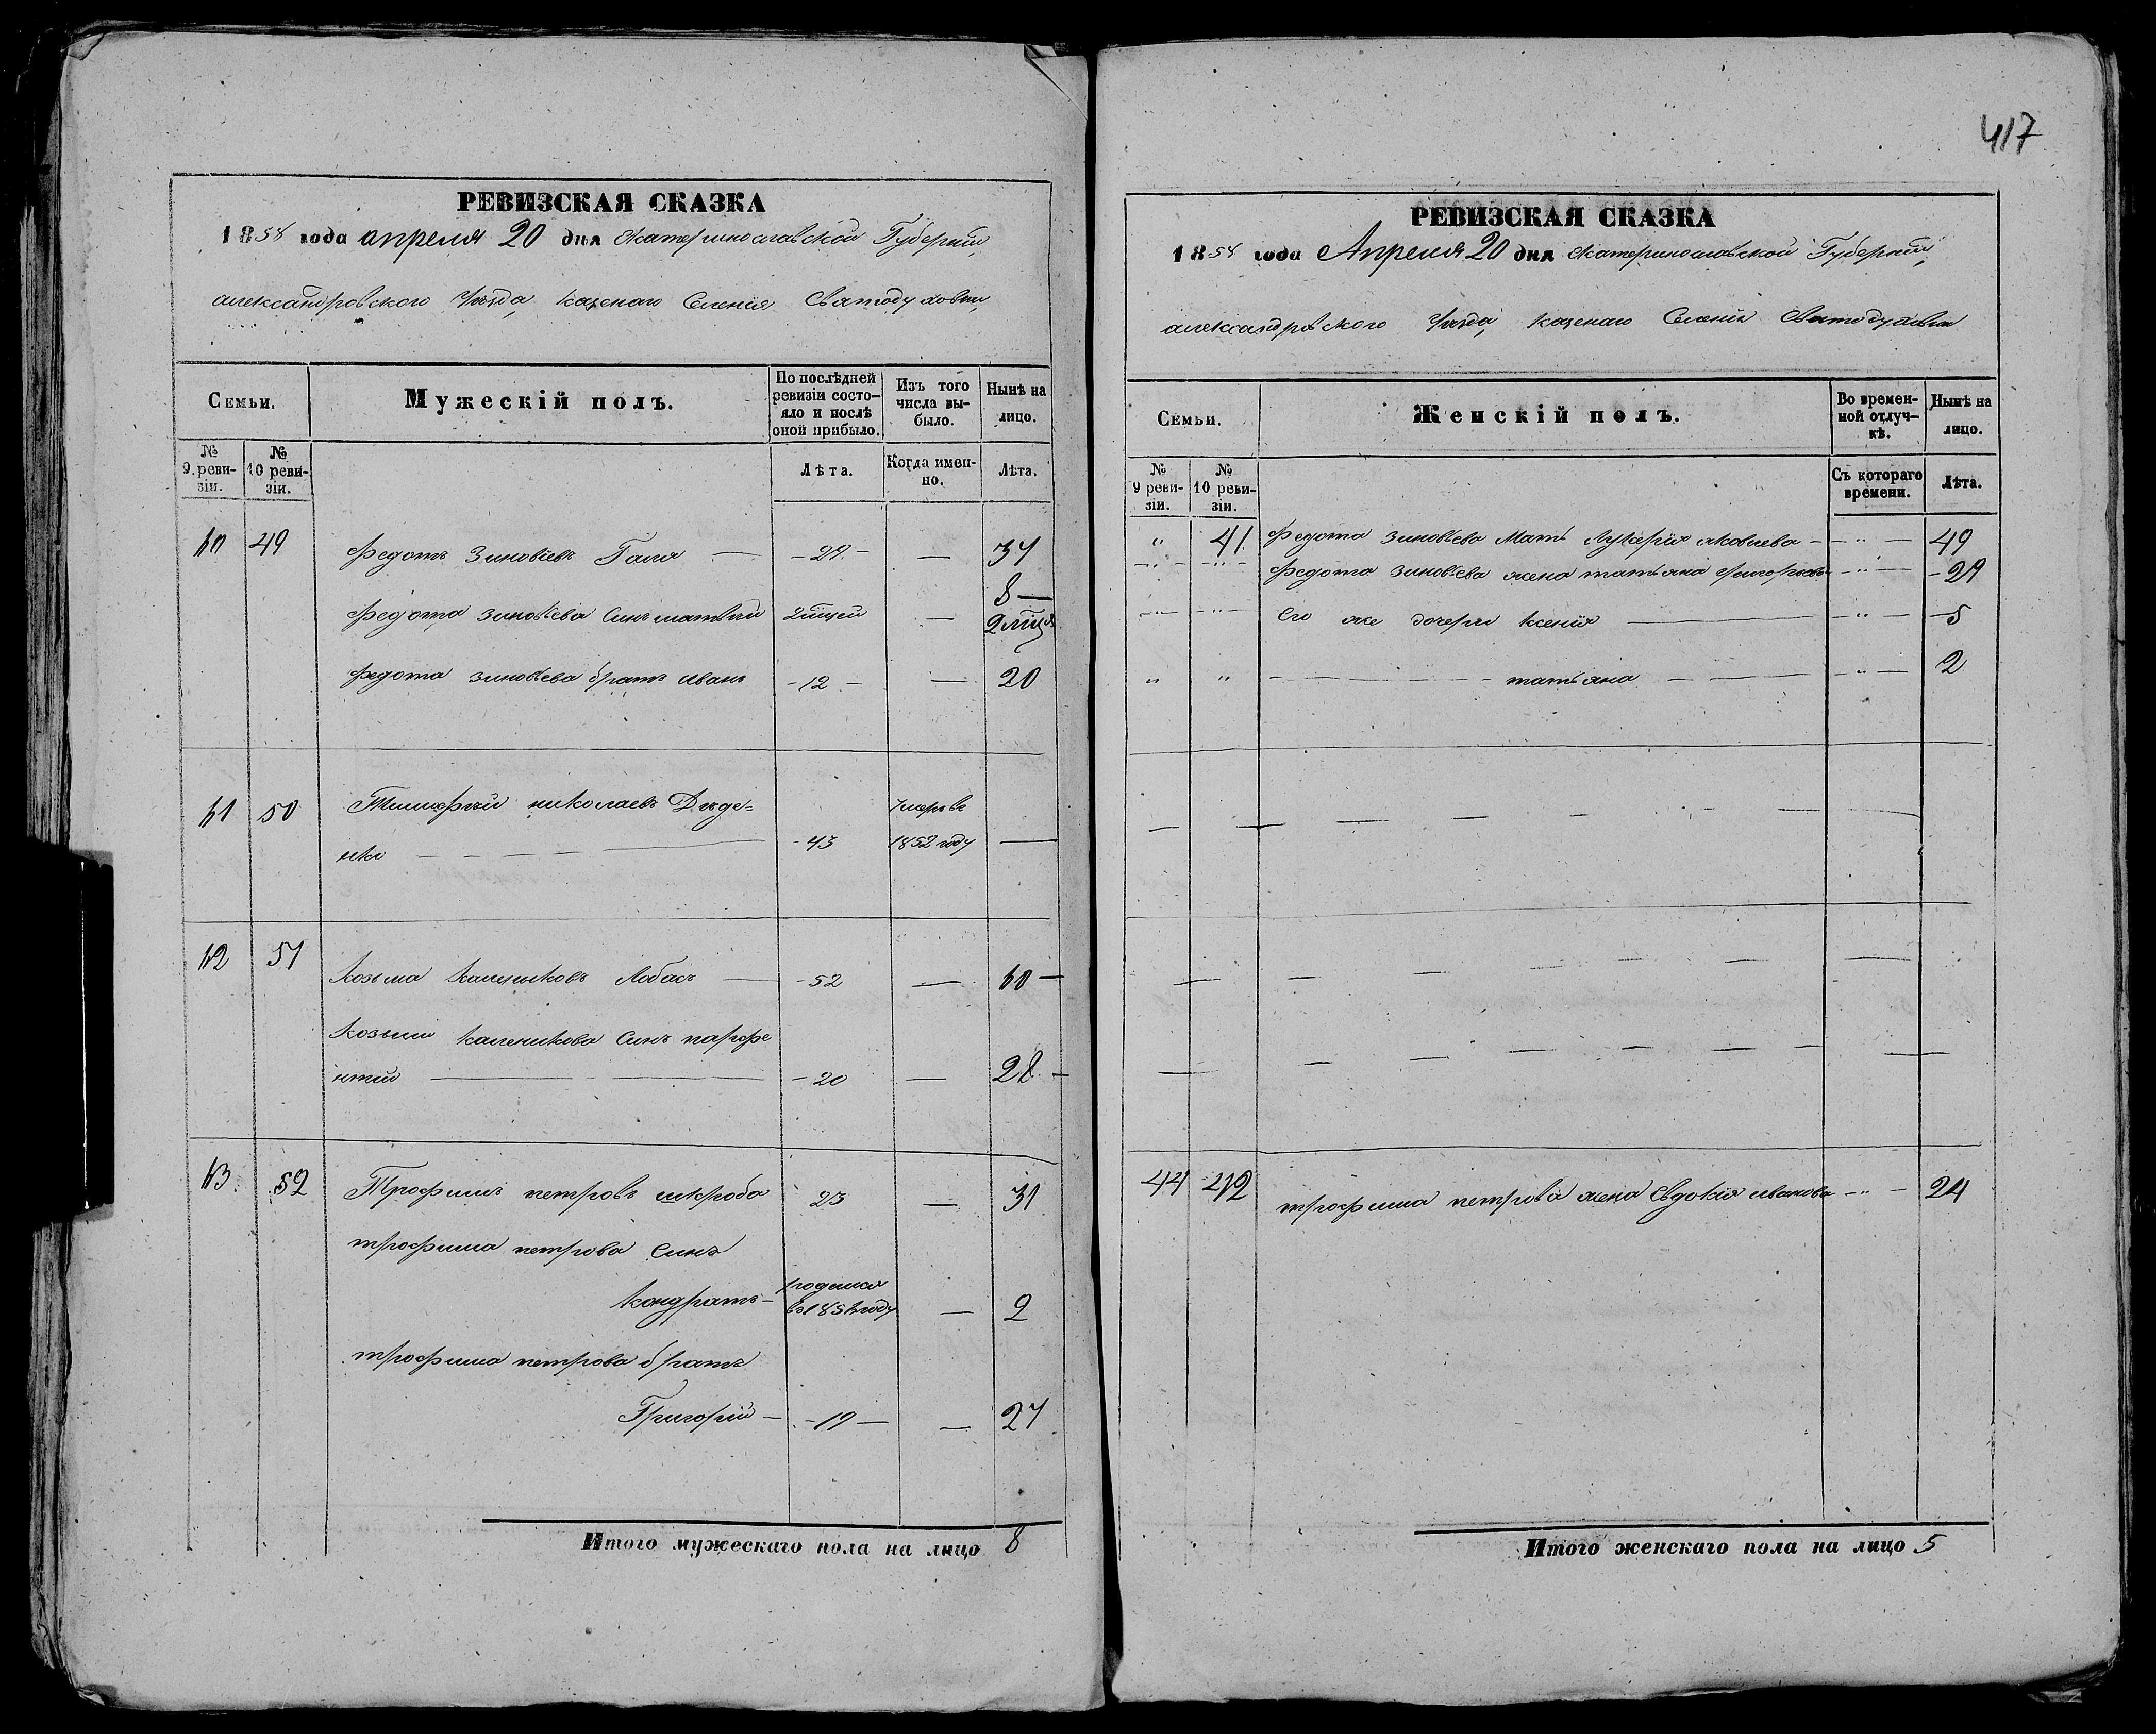 417
РЕВИЗСКАЯ СКАЗКА
1858 года апреля 20 дня Екатеринославской Губернии,
александровского Уезда, казенаго Селенія Святодуховки,
Семьи.
Мужескій полъ.
По послѣдней ревизіи состо-
яло и послѣ
оной прибыло.
Изъ того
числа вы-
было.
Нынѣ на
лицо.
№
9 реви-
зіи.
№
10 реви-
зіи.
Лѣта.
Когда имен-
но.
Лѣта.
49 Федотъ Зиновіевъ — 29 — — 37
8 —
Федота Зиновіева Синъ матвій —
Федота Зиновіева братъ иванъ — 12 — — 20
50 николаевъ Дъде=
нко — 43 Умеръ въ
1852 году —
51 Козьма Калениковъ Лобасъ — 52 —
Козьми Каленикова Синъ парфе
нтій — 20 — 28 —
52 Трофимъ петровъ шкроба 23 — 31
трофима петрова Синъ
Кондратъ — родился
въ 1856 году — 2
трофима петрова братъ
Григорій — 19 — — 27
Итого мужескаго пола на лицо 8
РЕВИЗСКАЯ СКАЗКА
1858 года Апреля 20 дня Екатеринославской Губерніи,
александровского Уезда, казенаго Селенія Святодуховки
Семьи.
Женскій полъ.
Во времен-
ной отлуч-
кѣ.
Нынѣ на
лицо.
№
9 реви-
зіи.
№
10 реви-
зіи.
Съ котораго
времени.
Лѣта.
" 41. Федота Зиновіева Мать Лукерія яковлева — " — 49
" " Федота Зиновіева жена татьяна Григорьева — " — 29
" " Его же дочери Ксенія — " — 5
" " татьяна — " — 2
44 42 трофима петрова жена Евдокія иванова — " — 24
Итого женскаго пола на лицо 5